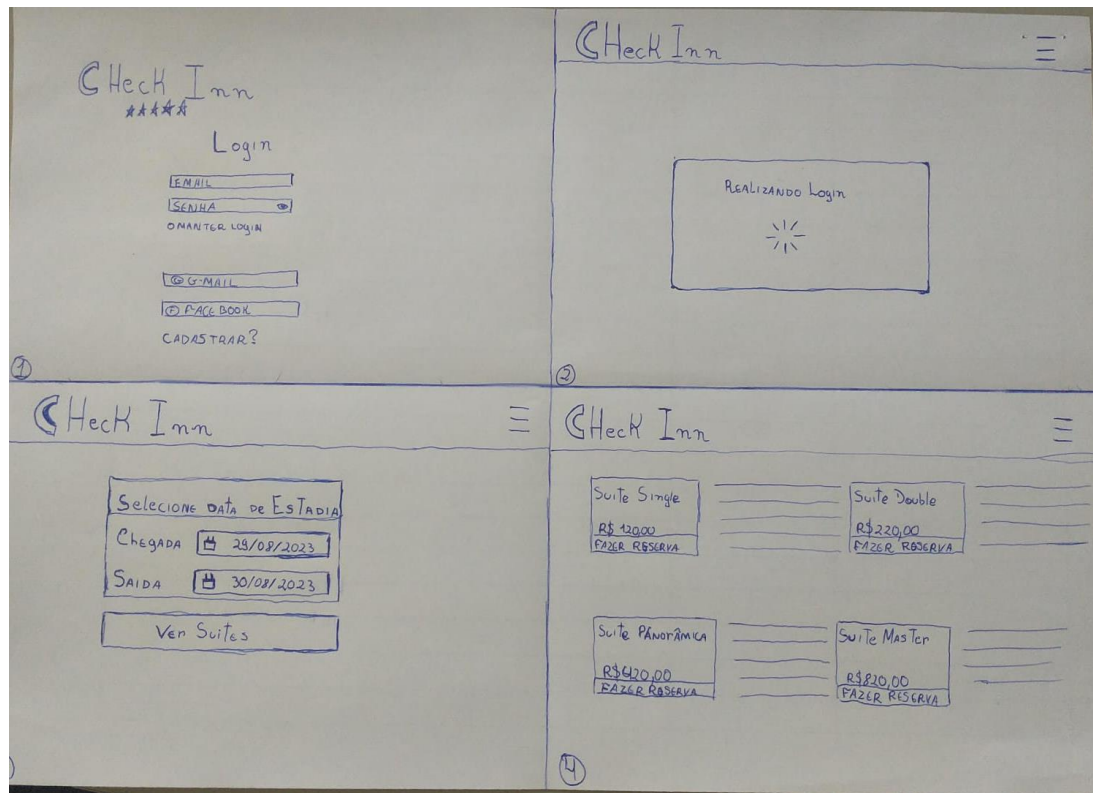 CHeck Inn
Login
EMAIL
SENHA
MANTER LOGIN
G G-MAIL
F FACEBOOK
CADASTRAR?
1
CHeck Inn
REALIZANDO Login
2
CHeck Inn
Selecione DATA DE ESTADIA
CHEGADA 29/08/2023
SAIDA 30/08/2023
Ver Suites
CHeck Inn
Suite Single
R$ 120,00
FAZER RESERVA
Suite Double
R$220,00
FAZER RESERVA
Suite PANORÂMICA
FAZER RESERVA
Suite Master
R$820,00
FAZER RESERVA
4